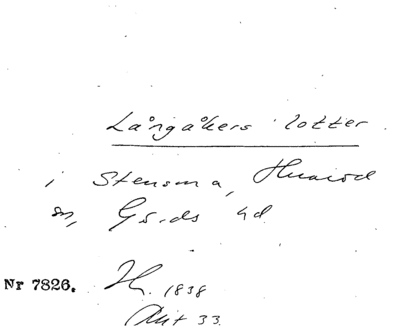 Långåkers lotter
i Stensma, Huaröd
sn, Gärds hd
Nr 7826. 1838
Akt 33